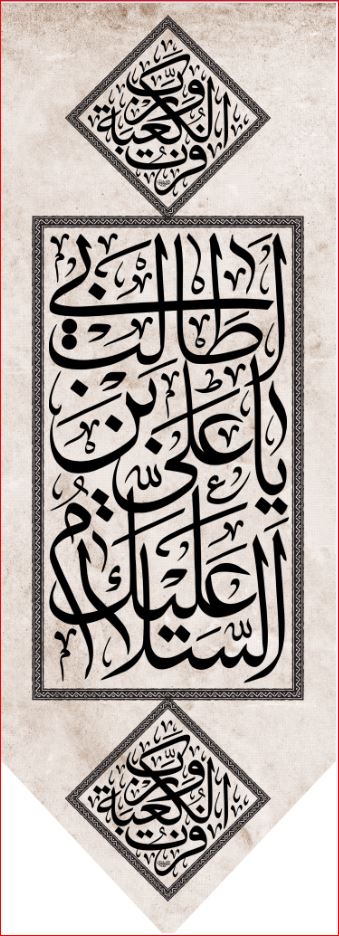 فزت
وربّ
الكعبة
السلام
عليك
يا علي بن
ابي طالب
فزت
وربّ
الكعبة